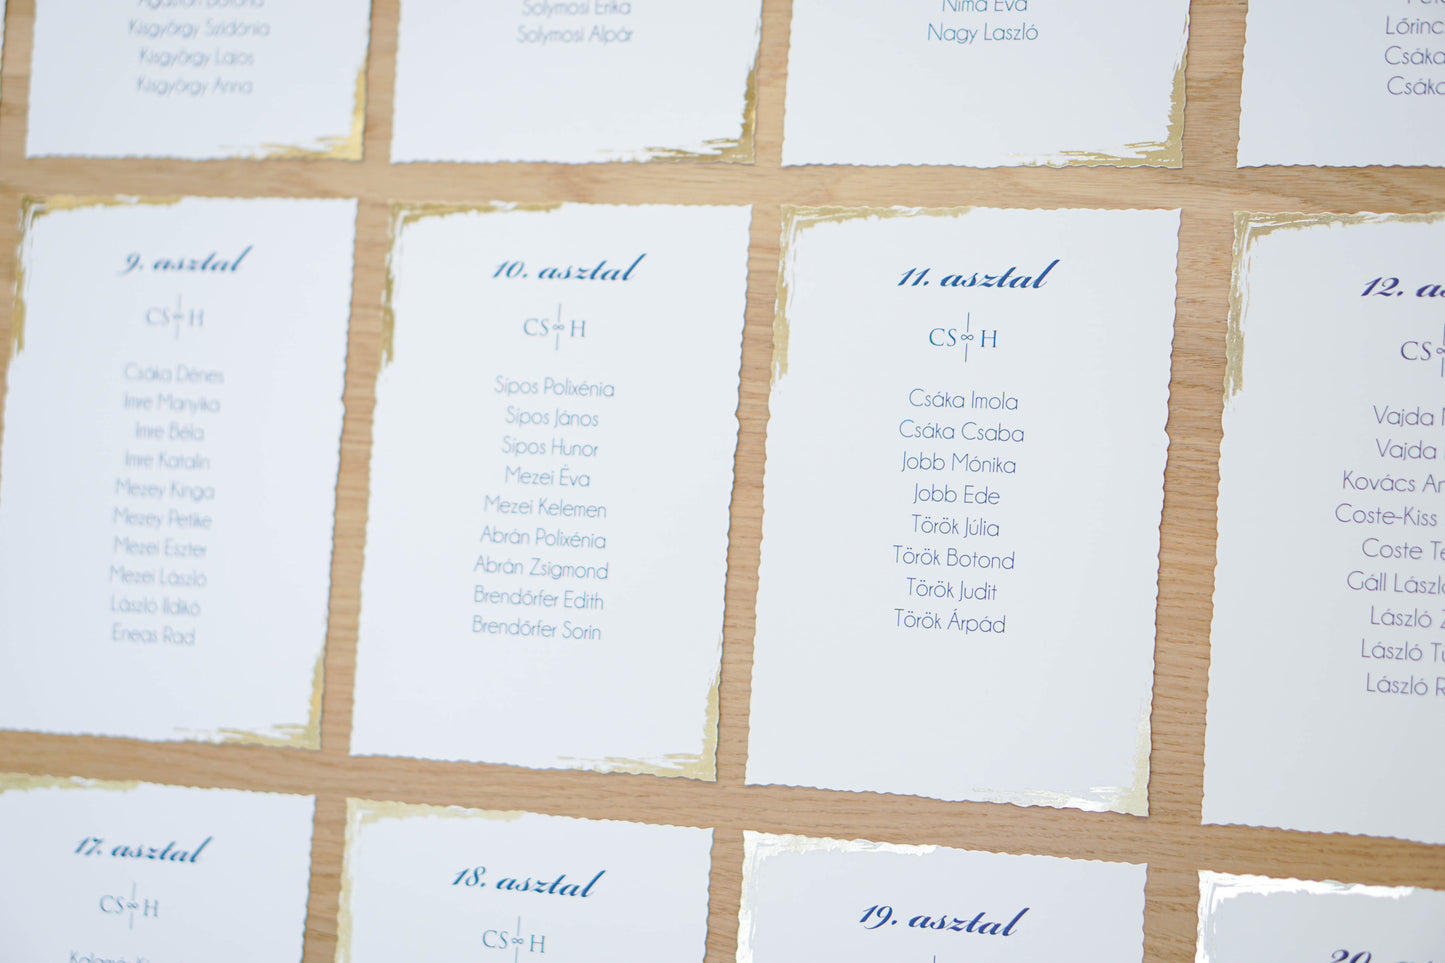 Ágoston Botond
Kisgyörgy Szidónia
Kisgyörgy Lajos
Kisgyörgy Anna
Solymosi Erika
Solymosi Alpár
Nima Éva
Nagy László
Lőrinc
Csáka
Csáka
9. asztal
CS∞H
Csáka Dénes
Imre Manyika
Imre Béla
Imre Katalin
Mezey Kinga
Mezey Petike
Mezei Eszter
Mezei László
László Ildikó
Eneas Rad
10. asztal
CS∞H
Sípos Polixénia
Sípos János
Sípos Hunor
Mezei Éva
Mezei Kelemen
Abrán Polixénia
Abrán Zsigmond
Brendőrfer Edith
Brendőrfer Sorin
11. asztal
CS∞H
Csáka Imola
Csáka Csaba
Jobb Mónika
Jobb Ede
Török Júlia
Török Botond
Török Judit
Török Árpád
12. as
CS
Vajda
Vajda
Kovács An
Coste-Kiss
Coste Te
Gáll László
László Z
László Tü
László R
17. asztal
CS∞H
18. asztal
CS∞H
19. asztal
20. as